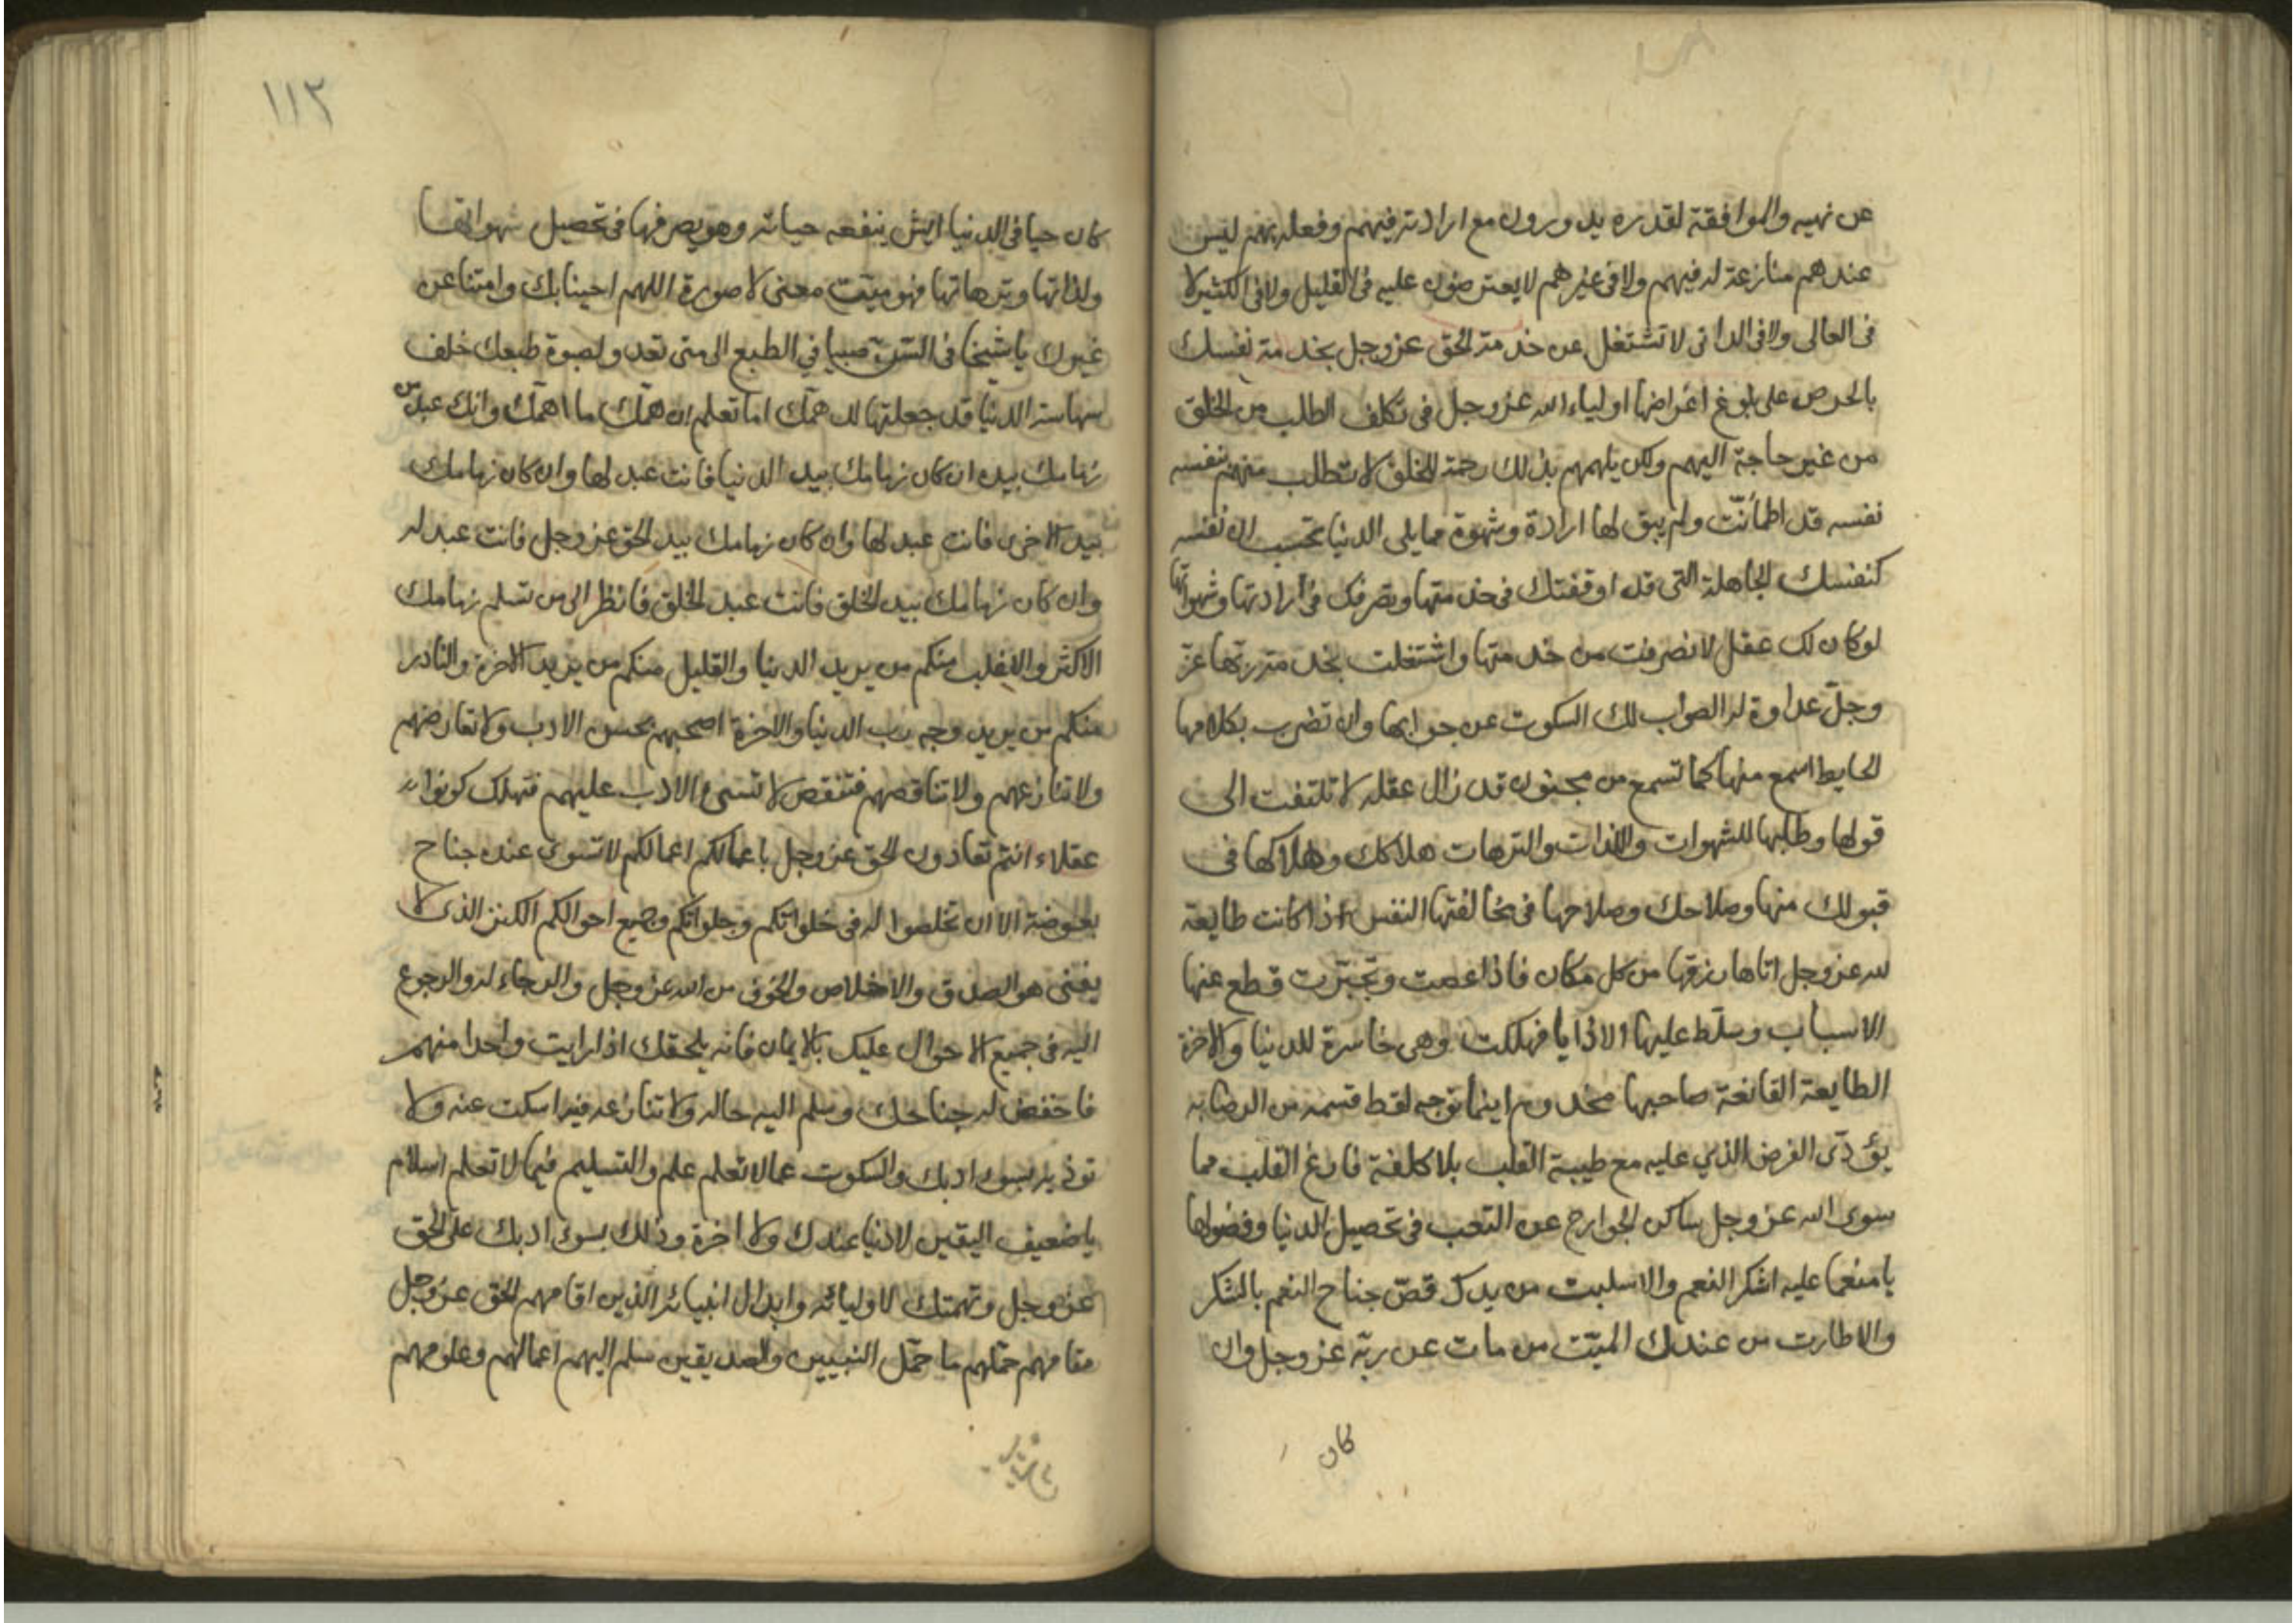 عن نهيه والموافقة لقدره يدورون مع ارادته فيهم وفعله بهم ليس
عندهم منازعة له فيهم ولا في غيرهم لا يعترضون عليه في القليل ولا في الكثير لا
في العالى ولا في الدانى لا تشتغل عن خدمة الحق عز وجل بخدمة نفسك
بالحرص على بلوغ اغراضها اولياء الله عز وجل في تكلف الطلب من الخلق
من غير حاجة اليهم ولكن يلهمهم بذلك رحمة للخلق لا تطلب منهم نفسه
نفسه قد اطمأنّت ولم يبق لها ارادة وشهوة مما يلى الدنيا تحسب ان نفسه
كنفسك الجاهلة التى قد اوقفتك في خدمتها وتصرفك في ارادتها وشهواتها
لو كان لك عقل لانصرفت من خدمتها واشتغلت بخدمة ربّها عزّ
وجلّ عداوة له الصواب لك السكوت عن جوابها وان تضرب بكلامها
الحايط اسمع منها كما تسمع من مجنون قد زال عقله لا تلتفت الى
قولها وطلبها للشهوات واللذات والترهات هلاكك وهلاكها في
قبولك منها وصلاحك وصلاحها في مخالفتها النفس اذا كانت طايعة
لله عز وجل اتاها رزقها من كل مكان فاذا عصت وتجبّرت قطع عنها
الاسباب وسلّط عليها الاذايا فهلكت وهى خاسرة للدنيا والاخرة
الطايعة القانعة صاحبها مخدوم اينما توجه لقط قسمه من الرضا به
يؤدّى الفرض الذي عليه مع طيبة القلب بلا كلفة فارغ القلب مما
سوى الله عز وجل ساكن الجوارح عن التعب في تحصيل الدنيا وفضولها
يا منعما عليه اشكر النعم والا سلبت من يدك قصّ جناح النعم بالشكر
والا طارت من عندك الميّت من مات عن ربّه عز وجل وان
كان
١١٢
كان حيا في الدنيا ايش ينفعه حياته وهو يصرفها في تحصيل شهواتها
ولذاتها وترهاتها فهو ميّت معنى لا صورة اللهم احينا بك وامتنا عن
غيرك يا شيخا في السّنّ صبيا في الطبع الى متى تعدو لصبوة طبعك خلف
سهاسة الدنيا قد جعلتها لك همّك اما تعلم ان همّك ما اهمّك وانك عبد من
زمامك بيده ان كان زمامك بيد الدنيا فانت عبد لها وان كان زمامك
بيد الاخرى فانت عبد لها وان كان زمامك بيد الحق عز وجل فانت عبد له
وان كان زمامك بيد الخلق فانت عبد الخلق فانظر الى من تسلم زمامك
الاكثر والاغلب منكم من يريد الدنيا والقليل منكم من يريد الاخرة والنادر
منكم من يريد وجه رب الدنيا والاخرة اصحبهم بحسن الادب ولا تعارضهم
ولا تنازعهم ولا تناقصهم فتنقص لا تسىء الادب عليهم فتهلك كونوا
عقلاء انتم تعادون الحق عز وجل باعمالكم اعمالكم لا تسوى عنده جناح
بعوضة الا ان تخلصوا له في خلواتكم وجلواتكم وجميع احوالكم الكنز الذى لا
يفنى هو الصدق والاخلاص والخوف من الله عز وجل والرجاء له والرجوع
اليه في جميع الاحوال عليك بالايمان فانه يلحقك اذا رايت واحدا منهم
فاخفض له جناحك وسلم اليه حاله ولا تنازعه فيه اسكت عنه ولا
توذيه بسوء ادبك والسكوت عما لا تعلم علم والتسليم فيما لا تعلم اسلام
يا ضعيف اليقين لا دنيا عندك ولا اخرة وذلك بسوء ادبك على الحق
عز وجل وتهمتك لاوليائه وابدال انبيائه الذين اقامهم الحق عز وجل
مقامهم حمّلهم ما حمّل النبيين والصديقين سلم اليهم اعمالهم وعلومهم